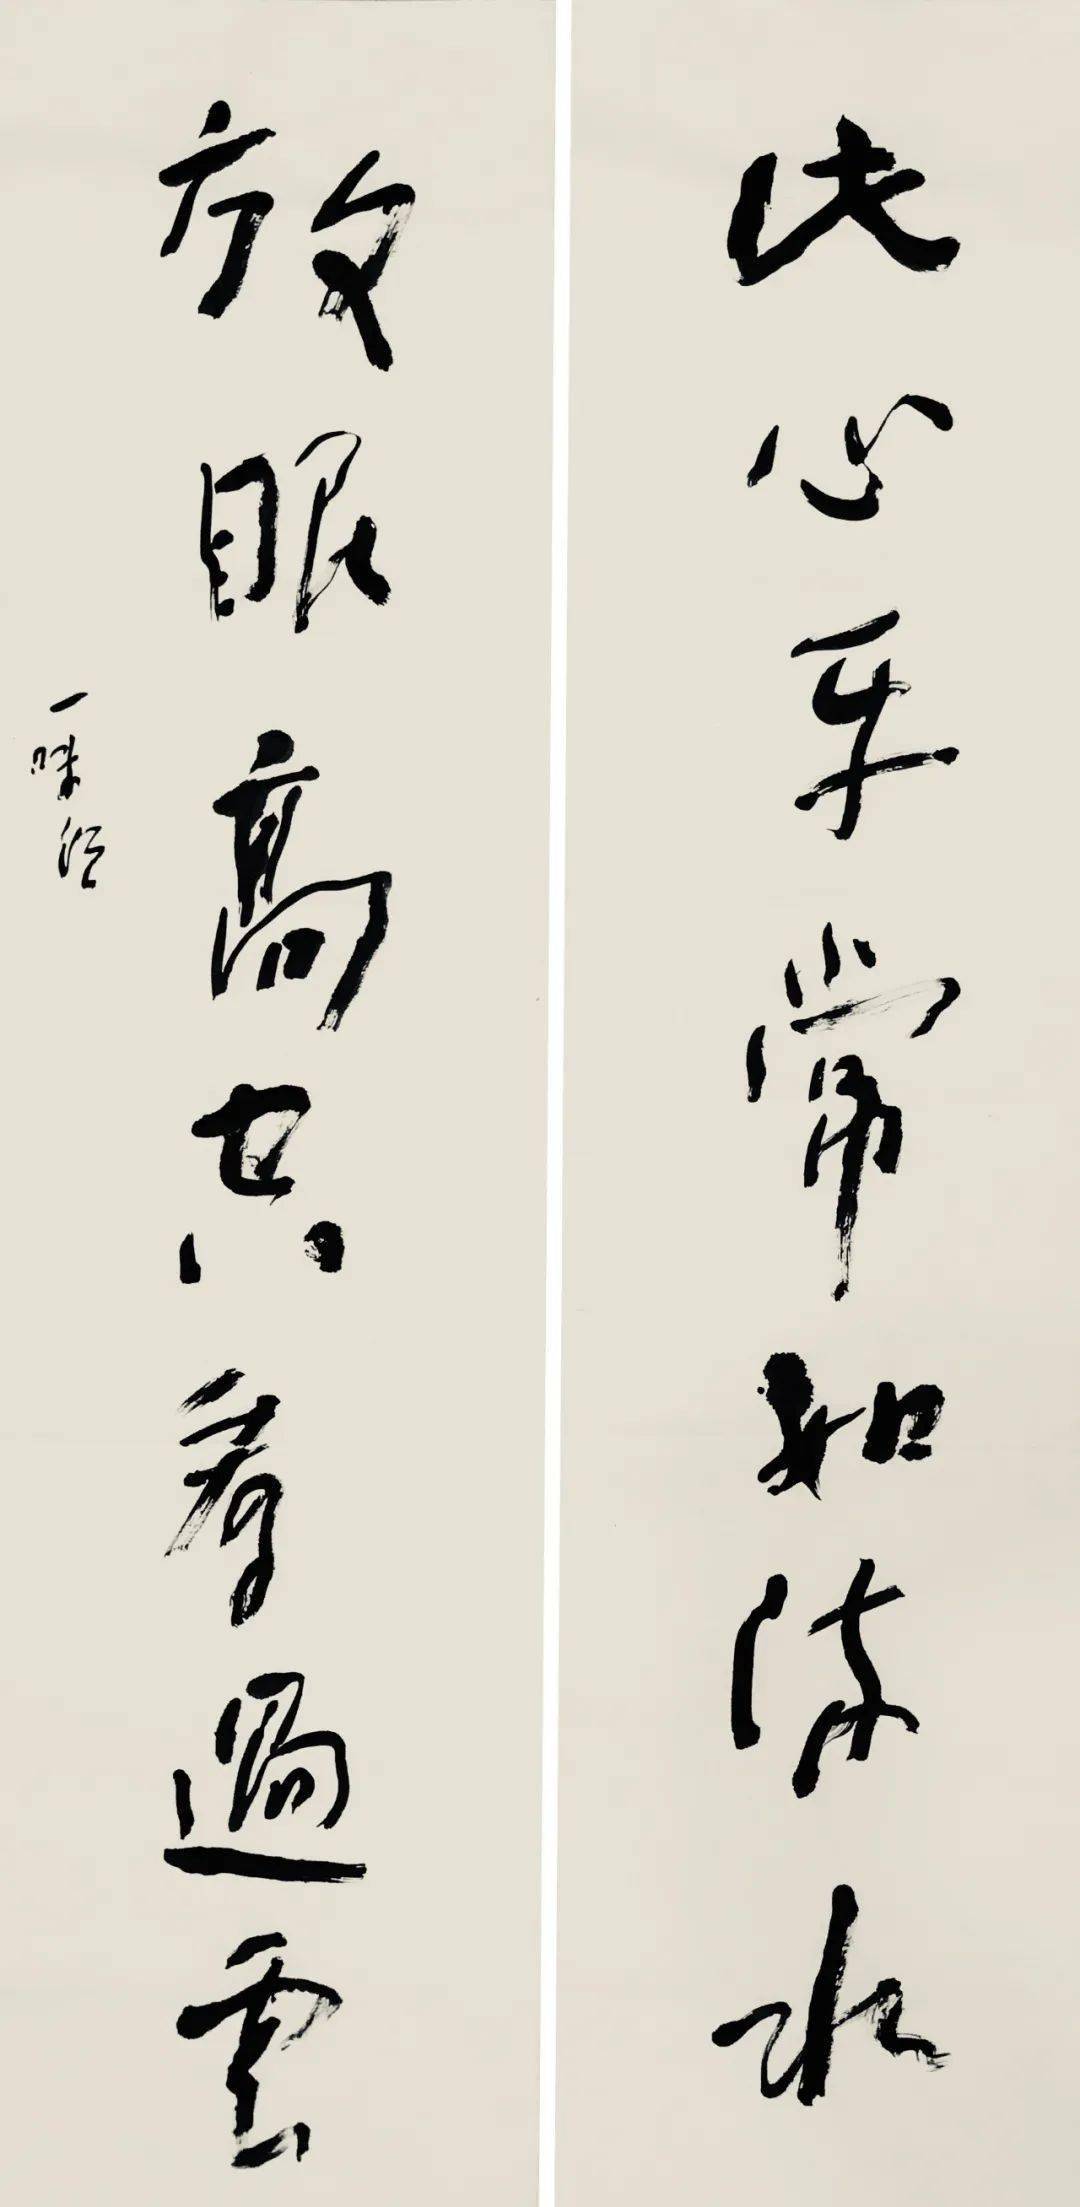 此心平常如流水
放眼高空看過雲
一味